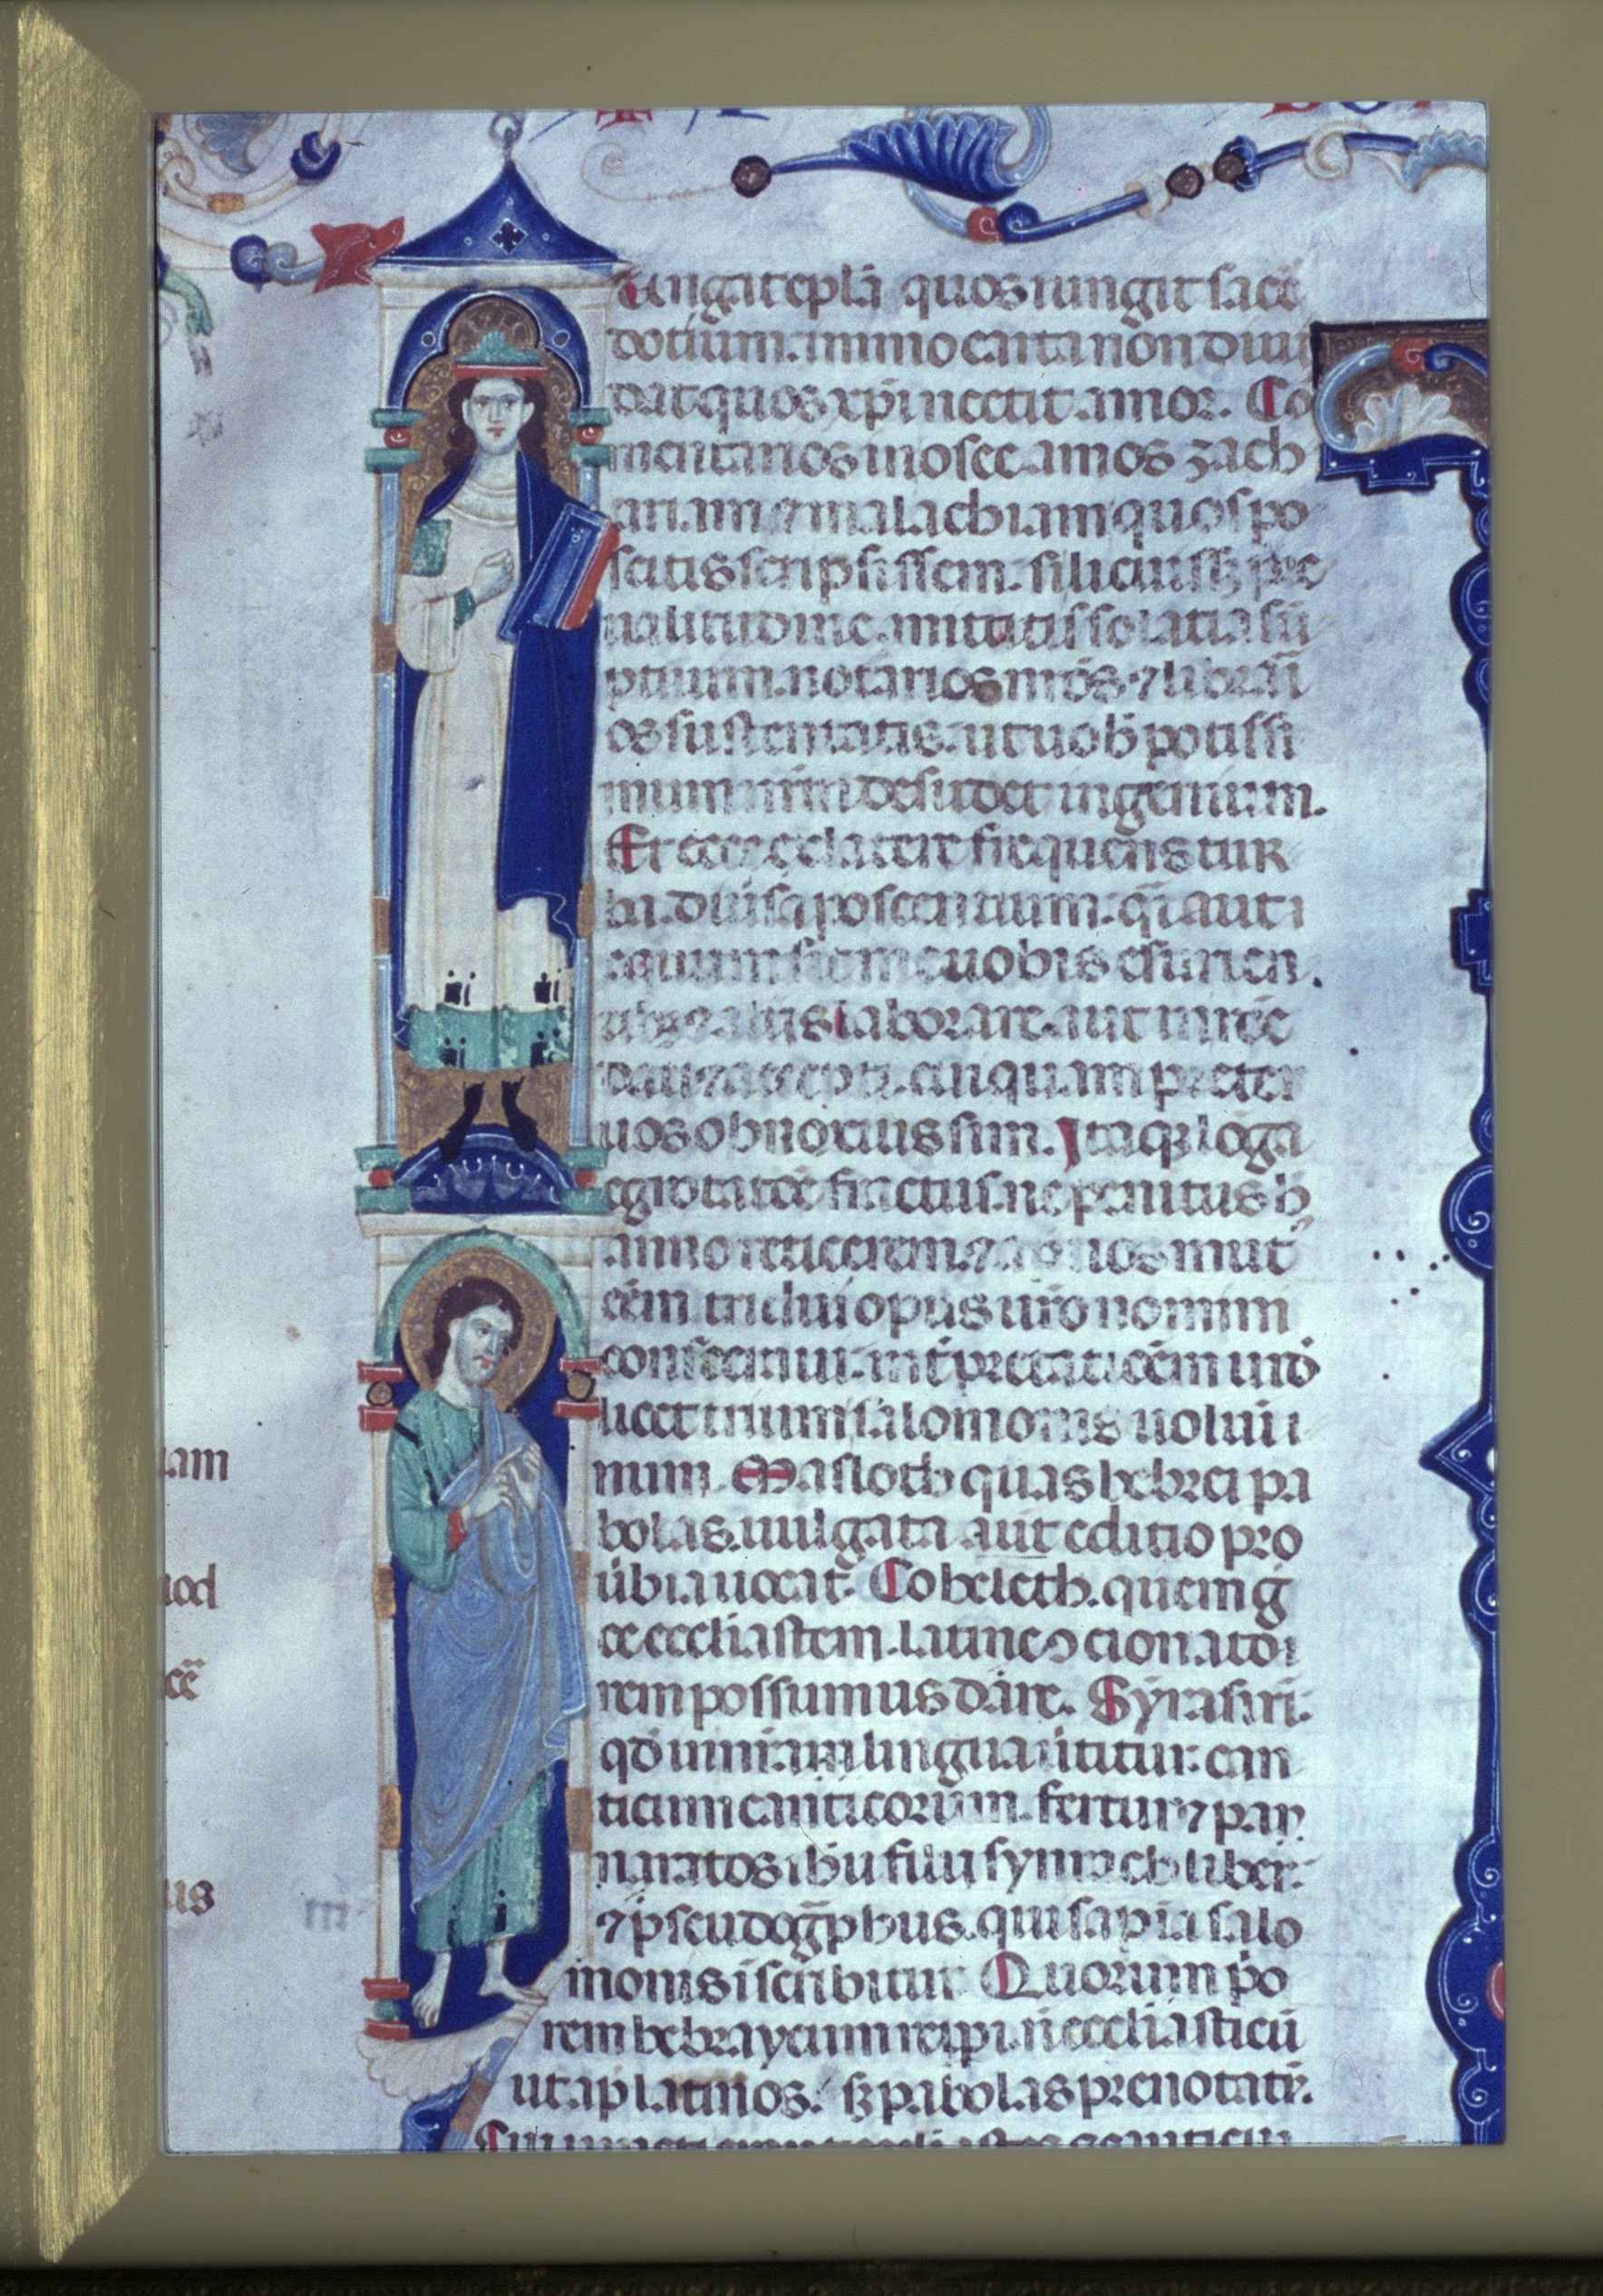 ungat epl̄a quos iungit sacē
dotium. immo carta non diui
dat quos xp̄i nectit amor. Co
mentarios in osee. amos zach
ariam ⁊ malachiam quos po
scitis scripsissem. si licuissꝫ pre
ualitudine. mittitis solatia sū
ptuum. notarios nr̄os ⁊ librari
os sustentatis. ut uob̄ potissi
mum nr̄m desudet ingenium.
Et ecce ex latere frequens tur
ba diuersa poscentium. qͣi aut
equum sit me uobis esurien
tibꝫ aliis laborare. aut in rōe
dati ⁊ accepti. cuiquam preter
uos obnoxius sim. Itaqꝫ loga
egrotatōe fractus. ne penitus h̄
anno reticerem. ⁊ apud uos mut
eēm tridui opus ur̄o nomini
consecraui. int̄pretatōem uidꝫ
licet trium salomonis uolumi
num. Masloth quas hebrei pa
bolas. uulgata aut̄ editio pro
ūbia uocat. Coheleth. quem g̃
ce ecclīasten. latine ꝯcionato
rem possumus dare. Syrasiri.
qd̄ in nr̄am lingua ūtitur. can
ticum canticorum. Fertur ⁊ pan
naretos ih̄u filii syrach liber.
⁊ pseudog̃phus. qui sapīa salo
monis iscribitur. Quorum po
rem hebraycum repi. n̄ ecclīasticū
ut ap̄ latinos. sꝫ pabolas prenotatū.